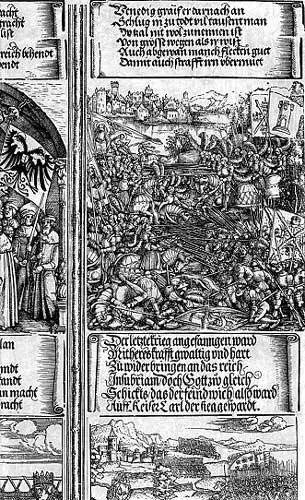 racht
tracht
list
reich behendt
endt
Venedig graif er darnach an
Schlug in zu todt vil tausent man
Do kal not wol zunennen ist
Von grösst wegen als ir wist
Auch abgewan manch flecken guet
Damit auch strafft irn vbermuet
lan
yndt
andt
an macht
bracht
Der letzte krieg angefanngen ward
Mit heres krafft gwaltig vnd hart
Zu wider bringen an das reich
Insubriam doch Gott zw gleich
Schickts das der feind wich alsd ward
Auff Keiser Carl der sieg gewardt.